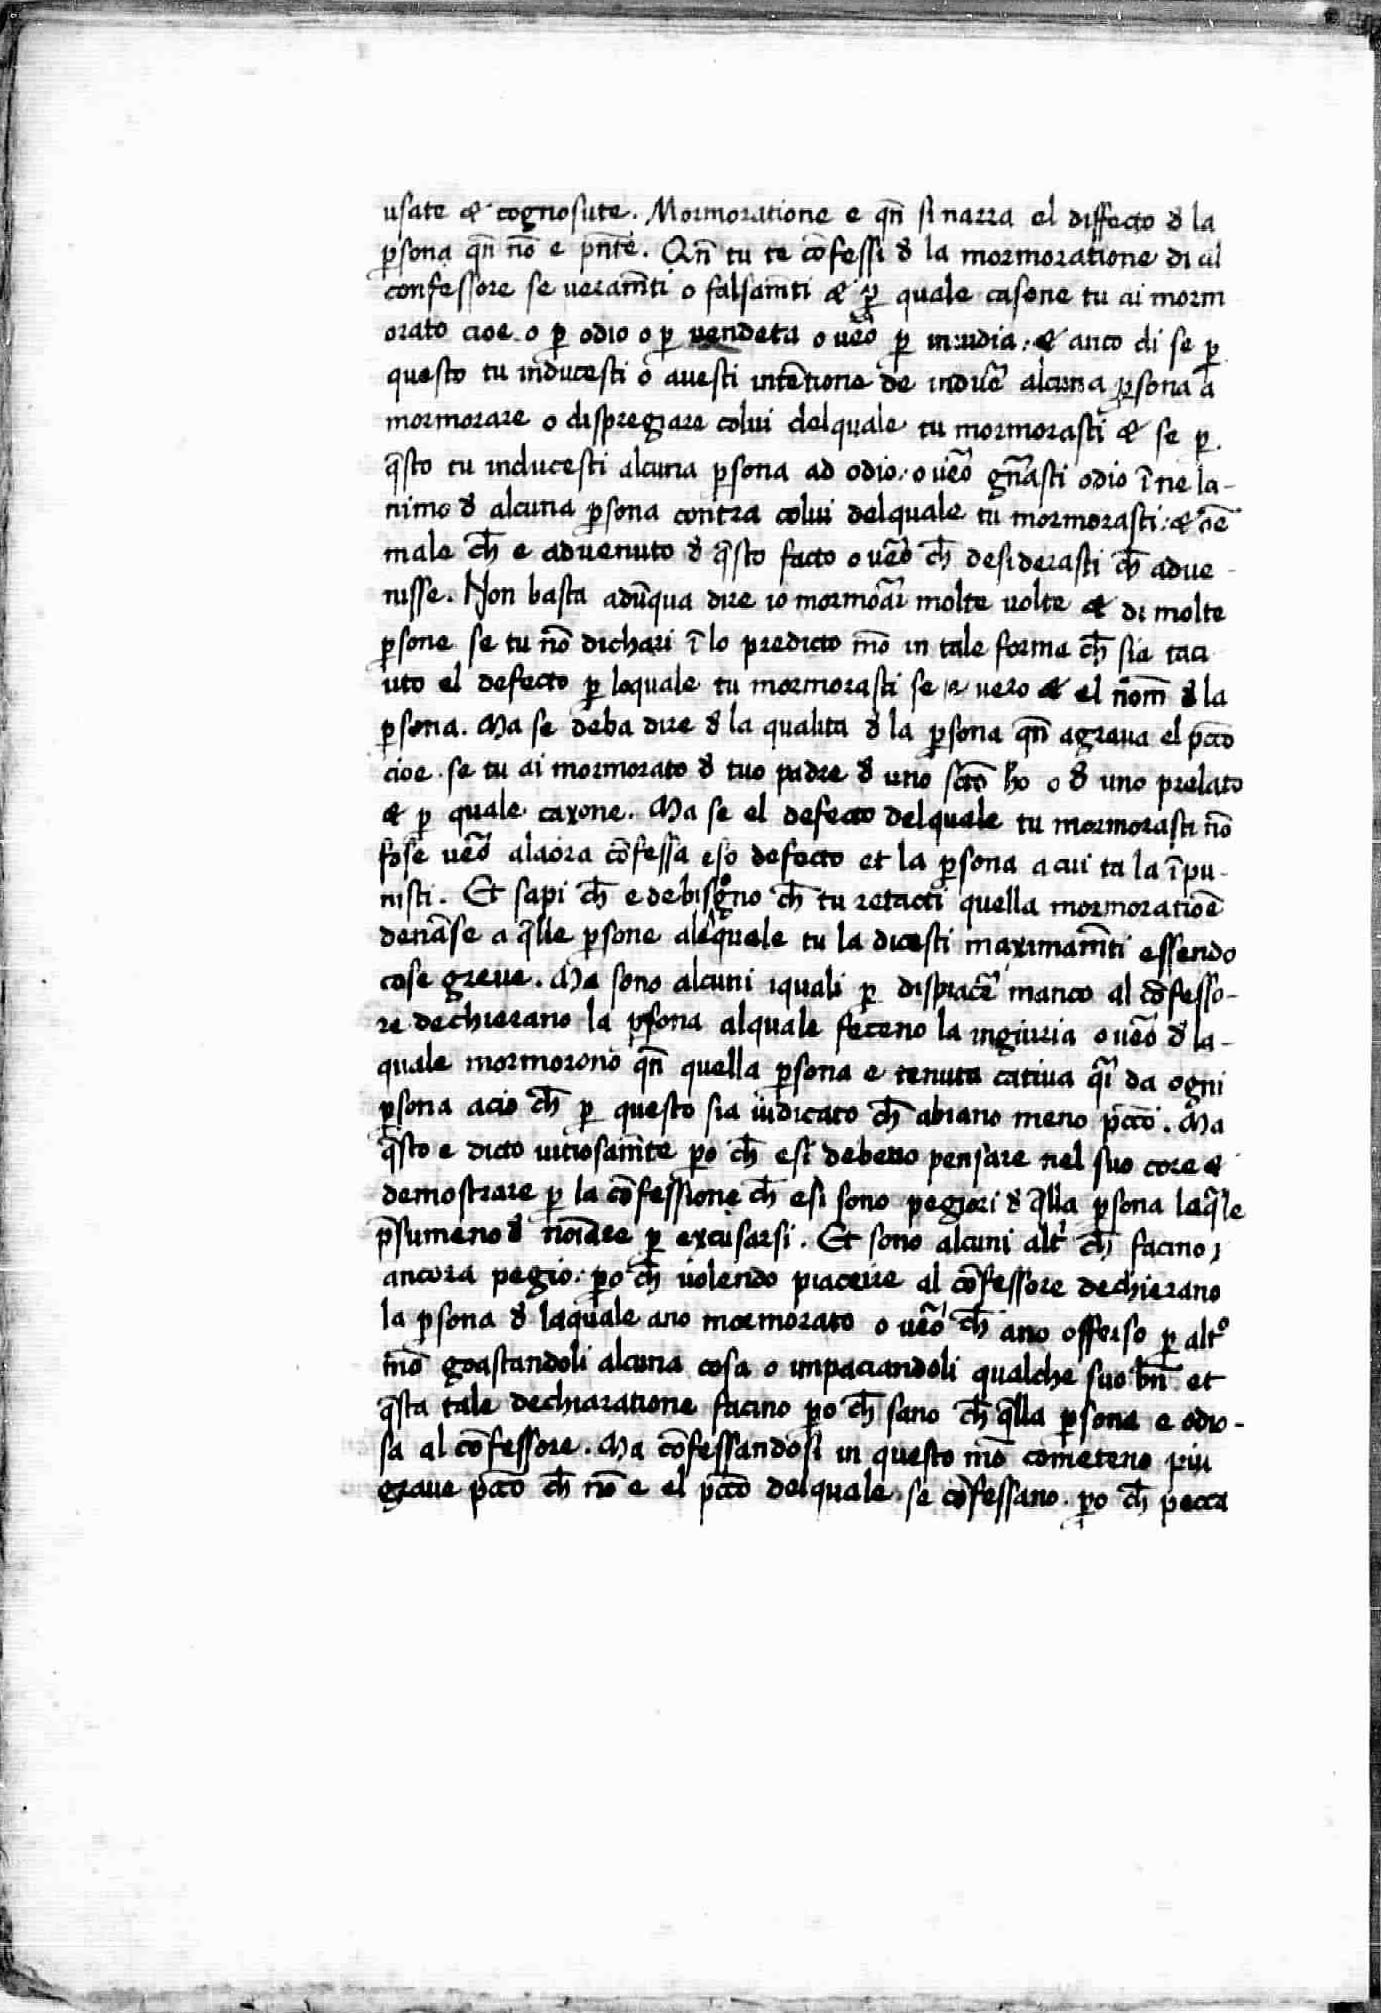 usate & cognosute. Mormoratione e qn̄ si narra el diffecto d̄ la
ꝑsona qn̄ nō e pn̄te. Qn̄ tu te cōfessi d̄ la mormoratione di al
confessore se veram̄ti o falsam̄ti & ꝑ quale casone tu ai morm
orato cioe o ꝑ odio o ꝑ vendeta o veō ꝑ invidia: & anco di se ꝑ
questo tu inducesti o avesti intētione de induc̄ alcuna ꝑsona a
mormorare o dispregiare colui delquale tu mormorasti & se ꝑ
q̄sto tu inducesti alcuna ꝑsona ad odio: o veō gn̄asti odio ī ne la-
nimo d̄ alcuna ꝑsona contra colui delquale tu mormorasti: & oē
male ch̄ e advenuto d̄ q̄sto facto o veō ch̄ desiderasti ch̄ adve-
nisse. Non basta adūqua dire io mormoāi molte volte & di molte
ꝑsone se tu nō dichari ī lo predicto mō in tale forma ch̄ sia taci
uto el defecto ꝑ loquale tu mormorasti se e vero & el nom̄ d̄ la
ꝑsona. Ma se deba dire d̄ la qualita d̄ la ꝑsona qn̄ agrava el pcc̄o
cioe se tu ai mormorato d̄ tuo padre d̄ uno sc̄to ho o d̄ uno prelato
& ꝑ quale caxone. Ma se el defecto delquale tu mormorasti nō
fose veō alaora cōfessa eso defecto et la ꝑsona a cui ta la īpu-
nisti. Et sapi ch̄ e de bisogno ch̄ tu retacti quella mormoratioē
denāse a q̄lle ꝑsone alequale tu la dicesti maximam̄ti essendo
cose greve. Ma sono alcuni iquali ꝑ dispiac̄e manco al cōfesso-
re dechierano la ꝑsona alquale feceno la ingiuria o veō d̄ la-
quale mormorono qn̄ quella ꝑsona e tenuta cativa q̄i da ogni
ꝑsona acio ch̄ ꝑ questo sia iudicato ch̄ abiano meno pcc̄o. Ma
q̄sto e dicto vitiosam̄te ꝑo ch̄ esi debeno pensare nel suo core &
demostrare ꝑ la cōfessione ch̄ esi sono pegiori d̄ q̄lla ꝑsona laq̄le
p̄sumeno d̄ noīare ꝑ excusarsi. Et sono alcuni alt̄i ch̄ facino
ancora pegio: ꝑo ch̄ volendo piacere al cōfessore dechierano
la ꝑsona d̄ laquale ano mormorato o veō ch̄ ano offerso ꝑ altº
mō goastandoli alcuna cosa o inpaciandoli qualche suo bn̄ et
q̄sta tale dechiaratione facino ꝑo ch̄ sano ch̄ q̄lla ꝑsona e odio-
sa al cōfessore. Ma cōfessandosi in questo mō cometeno piu
grave pcc̄o ch̄ nō e el pcc̄o delquale se cōfessano. ꝑo ch̄ pecca